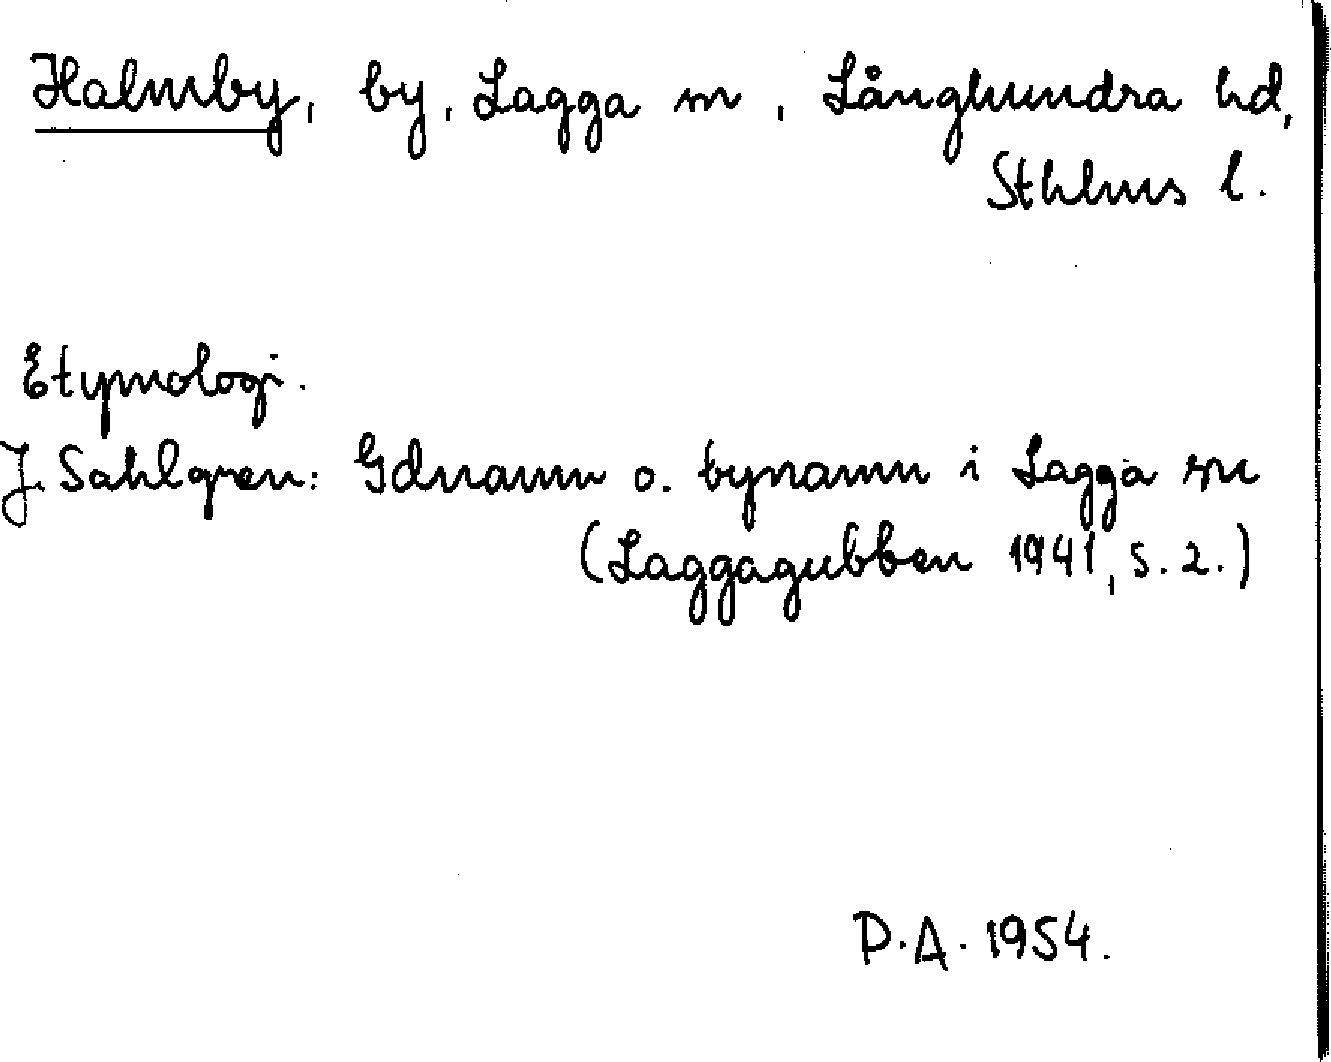 Halmby, by, Lagga sn, Långhundra hd,
Sthlms l.
Etymologi.
J. Sahlgren: Gdnamn o. bynamn i Lagga sn
(Laggagubben 1941, s. 2.)
P.A. 1954.